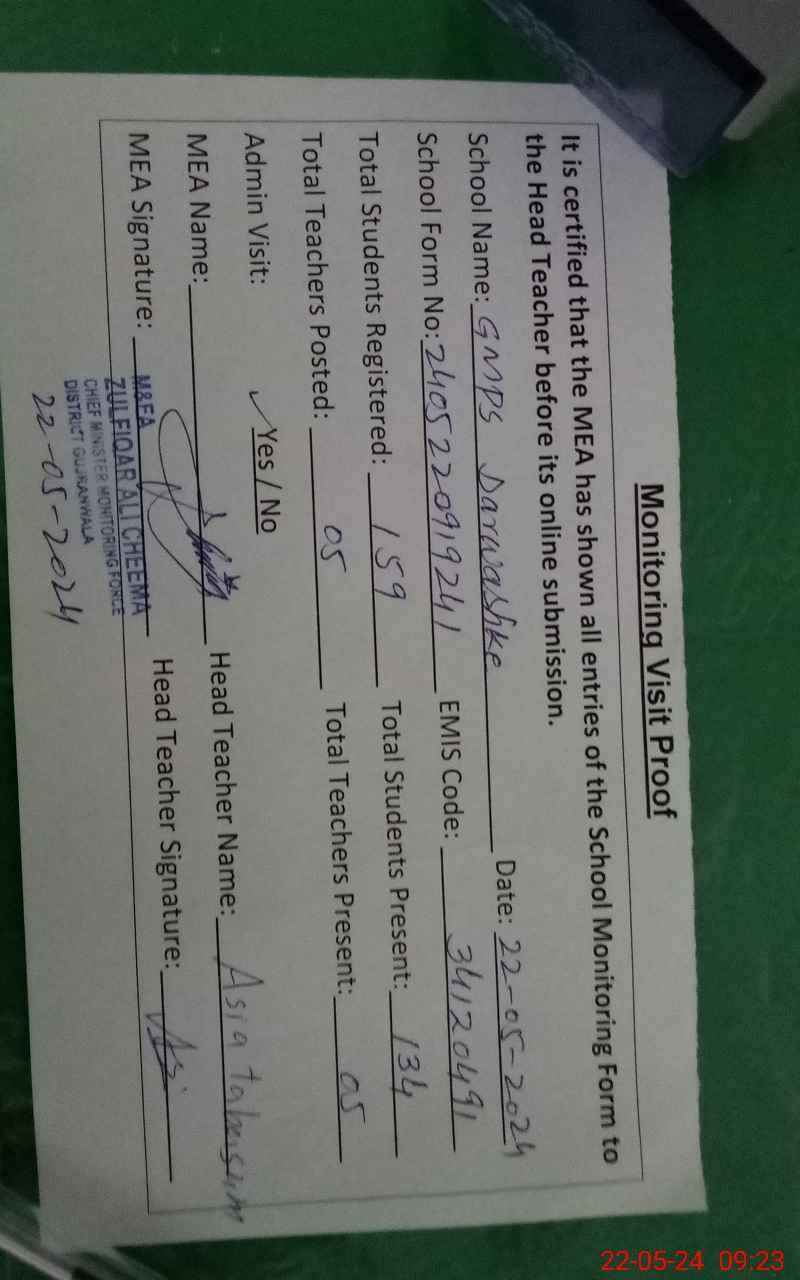 Monitoring Visit Proof
It is certified that the MEA has shown all entries of the School Monitoring Form to
the Head Teacher before its online submission.
School Name: GMPS Darwashke Date: 22-05-2024
School Form No: 2405220919241 EMIS Code: 34120491
Total Students Registered: 159 Total Students Present: 134
Total Teachers Posted: 05 Total Teachers Present: 05
Admin Visit: ✓ Yes / No
MEA Name: Head Teacher Name: Asia tabassum
MEA Signature: Head Teacher Signature:
M&EA
ZULFIQAR ALI CHEEMA
CHIEF MINISTER MONITORING FORCE
DISTRICT GUJRANWALA
22-05-2024
22-05-24 09:23